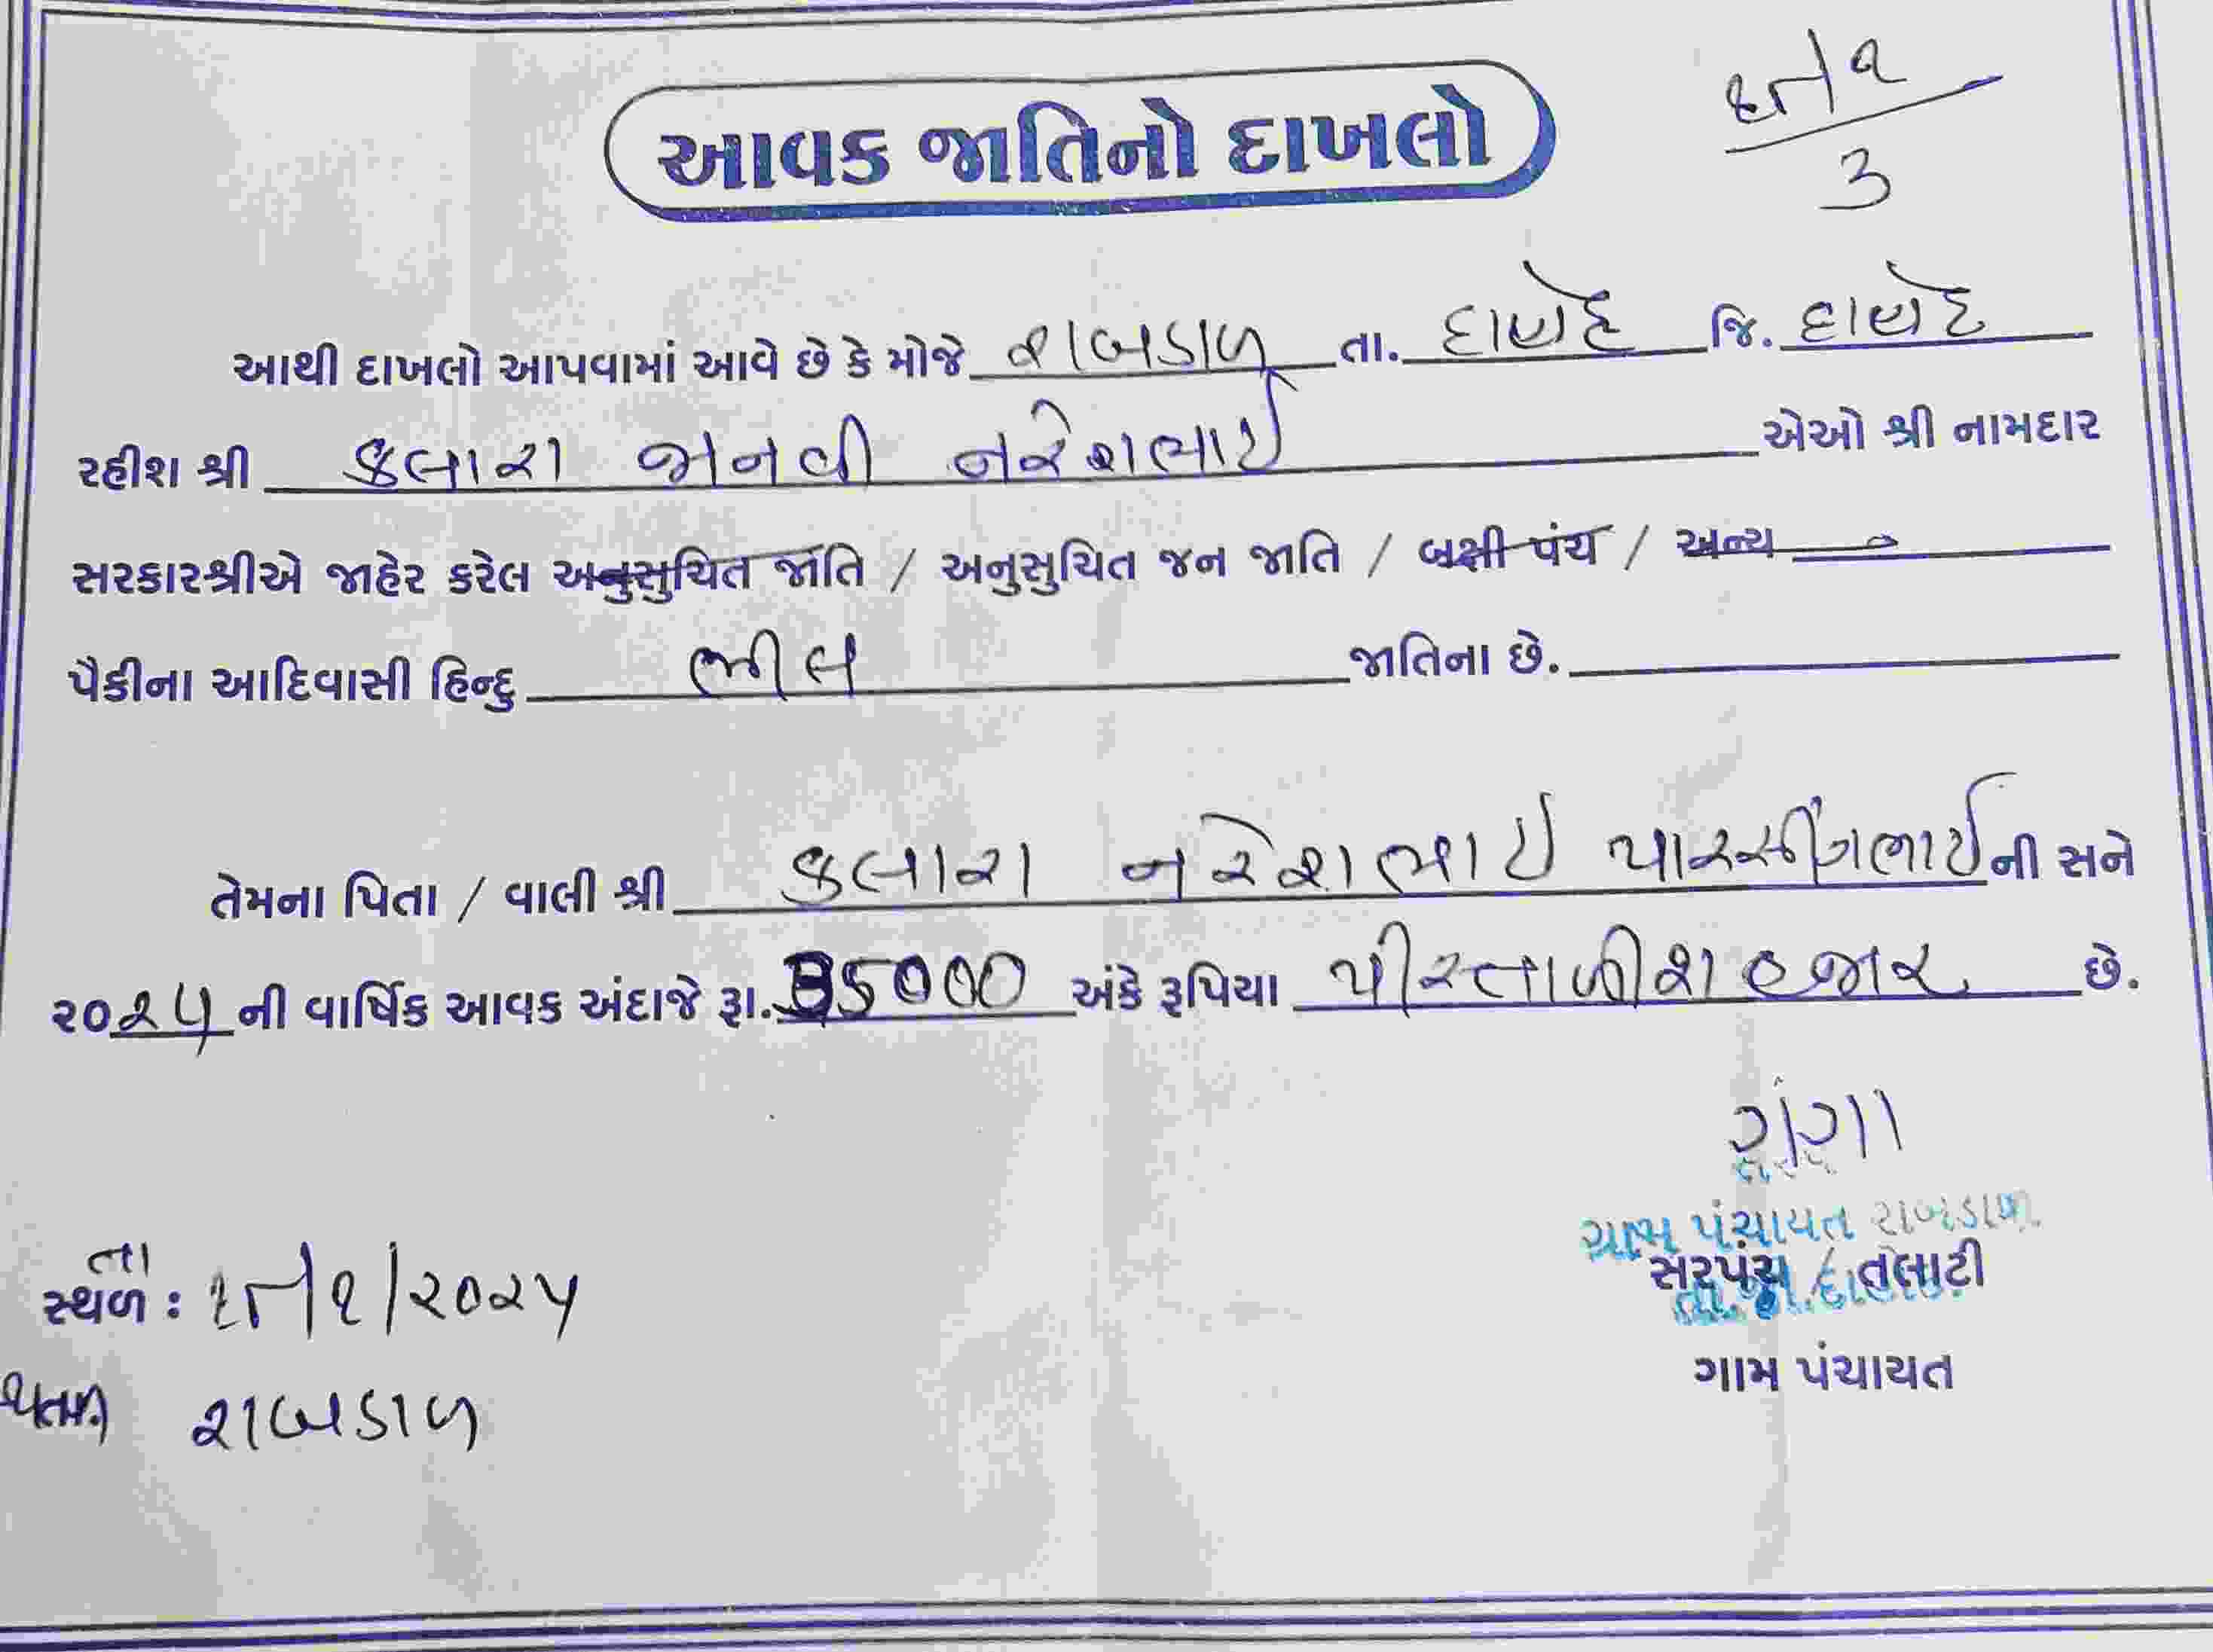 આવક જાતિનો દાખલો
3
આથી દાખલો આપવામાં આવે છે કે મોજે રાબડાળ તા. દાહોદ જિ. દાહોદ
રહીશ શ્રી કલારા જાનવી નરેશભાઈ એઓ શ્રી નામદાર
સરકારશ્રીએ જાહેર કરેલ અનુસુચિત જાતિ / અનુસુચિત જન જાતિ / બક્ષી પંચ / અન્ય
પૈકીના આદિવાસી હિન્દુ ભીલ જાતિના છે.
તેમના પિતા / વાલી શ્રી કલારા નરેશભાઈ પારસીંગભાઈ ની સને
૨૦૨૫ ની વાર્ષિક આવક અંદાજે રૂા. 35000 અંકે રૂપિયા પીસ્તાળીશ હજાર છે.
ગંગા
ગ્રામ પંચાયત રાબડાળ
સરપંચ / તલાટી
તા.જી.દાહોદ
ગામ પંચાયત
તા
સ્થળ : /૨૦૨૫
રાબડાળ